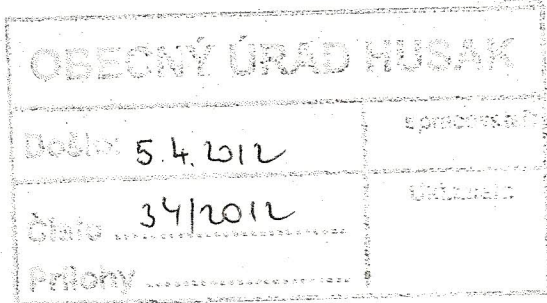 OBECNÝ ÚRAD HUSÁK
Došlo: 5.4.2012
Číslo 34/2012
Prílohy